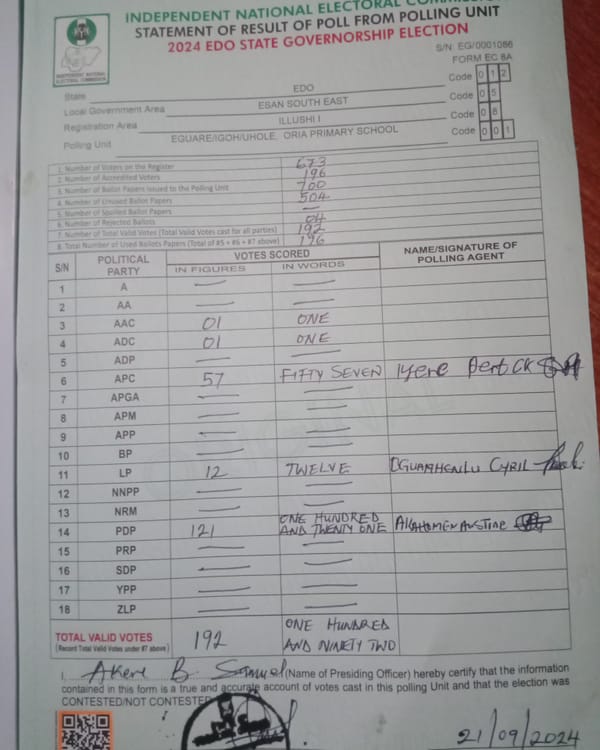 INDEPENDENT NATIONAL ELECTORAL
STATEMENT OF RESULT OF POLL FROM POLLING UNIT
2024 EDO STATE GOVERNORSHIP ELECTION
INDEPENDENT NATIONAL ELECTORAL COMMISSION
S/N: EG/0001086
FORM EC 8A
State EDO Code 0 1 2
Local Government Area ESAN SOUTH EAST Code 0 5
Registration Area ILLUSHI I Code 0 8
Polling Unit EGUARE/IGOH/UHOLE, ORIA PRIMARY SCHOOL Code 0 0 1
1. Number of Voters on the Register 673
2. Number of Accredited Voters 196
3. Number of Ballot Papers Issued to the Polling Unit 700
4. Number of Unused Ballot Papers 504
5. Number of Spoiled Ballot Papers —
6. Number of Rejected Ballots 04
7. Number of Total Valid Votes (Total Valid Votes cast for all parties) 192
8. Total Number of Used Ballots Papers (Total of #5 + #6 + #7 above) 196
S/N POLITICAL PARTY VOTES SCORED NAME/SIGNATURE OF POLLING AGENT
IN FIGURES IN WORDS
1 A — —
2 AA — —
3 AAC 01 ONE
4 ADC 01 ONE
5 ADP — —
6 APC 57 FIFTY SEVEN Iyere
7 APGA — —
8 APM — —
9 APP — —
10 BP — —
11 LP 12 TWELVE CYRIL
12 NNPP — —
13 NRM — —
14 PDP 121 ONE HUNDRED AND TWENTY ONE AUSTINE
15 PRP — —
16 SDP — —
17 YPP — —
18 ZLP — —
TOTAL VALID VOTES 192 ONE HUNDRED
(Record Total Valid Votes under #7 above) AND NINETY TWO
I, Akere B. Samuel (Name of Presiding Officer) hereby certify that the information
contained in this form is a true and accurate account of votes cast in this polling Unit and that the election was
CONTESTED/NOT CONTESTED
21/09/2024